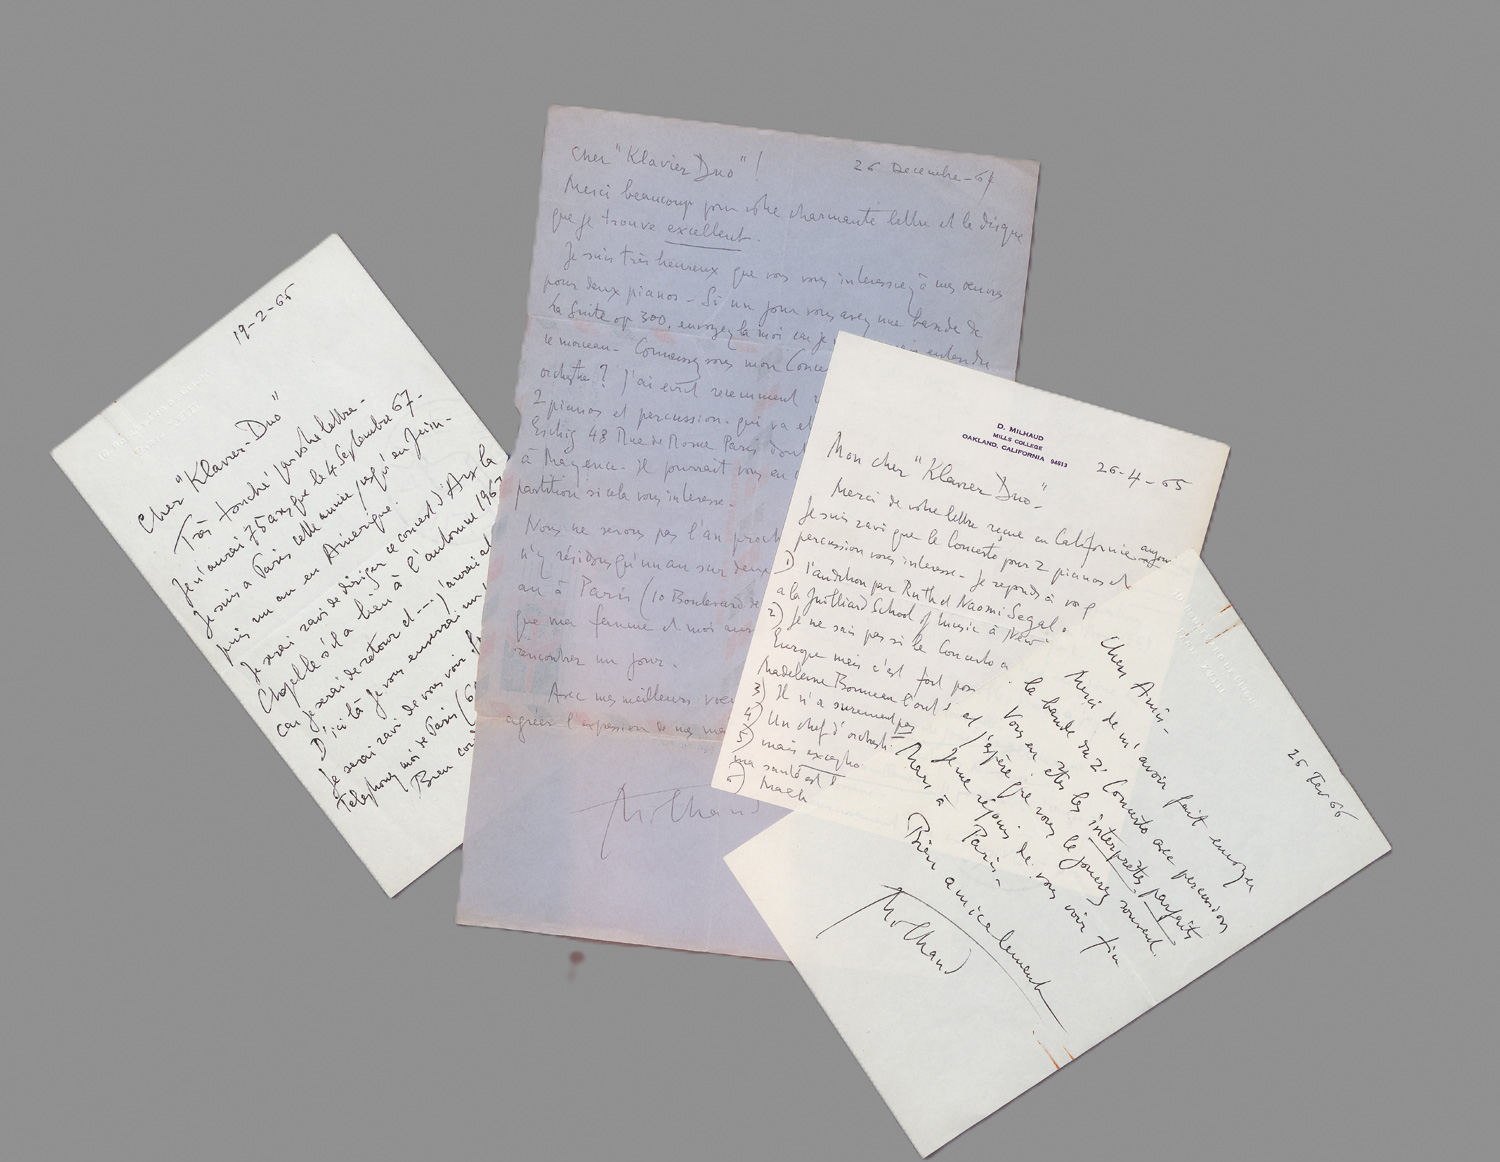 19-2-65
Cher "Klavier-Duo"
Très touché par votre lettre-
Je n'aurai 75 ans que le 4 Septembre 67-
Je suis à Paris cette année jusqu'en Juin-
puis un an en Amérique.
Je serai ravi de diriger ce concert d'Aix la
Chapelle s'il a lieu à l'automne 196
car je serai de retour et --- j'aurai
D'ici là je vous enverrai un
Je serai ravi de vous voir
Telephonez moi de Paris
Bien
Cher "Klavier Duo"!
26 Decembre-
Merci beaucoup pour votre charmante lettre et le disque
que je trouve excellent.
Je suis très heureux que vous vous interessiez à mes œuvres
pour deux pianos- Si un jour vous avez une bande de
la Suite op 300, envoyez la moi car je entendu
ce morceau- Connaissez vous mon Conce
orchestre? J'ai écrit recemment
2 pianos et percussion- qui va et
Eschig 48 Rue de Rome Paris dont
à Mayence- il pourrait vous en
partition si cela vous interesse-
Nous ne serons pas l'an proch
n'y résidons qu'un an sur deux
an à Paris (10 Boulevard de
que ma femme et moi aur
rencontrer un jour.
Avec mes meilleurs vœu
agréer l'expression de mes
Milhaud
D. MILHAUD
MILLS COLLEGE
OAKLAND, CALIFORNIA 94613
26-4-65
Mon cher "Klavier Duo"-
Merci de votre lettre reçue en Californie
Je suis ravi que le Concerto pour 2 pianos et
percussion vous interesse- Je reponds à vos
1) l'audition par Ruth et Naomi Segal
a la Juilliard School of Music à New
2) Je ne sais pas si le Concerto a
Europe mais c'est fort pos
Madeleine Bonneau l'ont
3) Il n'a surement pas
4) Un chef d'orchest
5) mais
ma santé est
6)
26 Fev 66
Chers Amis-
Merci de m'avoir fait envoyer
la bande du 2e Concerto avec percussion
Vous en êtes les interprètes parfaits
et j'espère que vous le jouerez souvent.
Je me réjouis de vous voir fin
Mars à Paris-
Bien amicalement
Milhaud